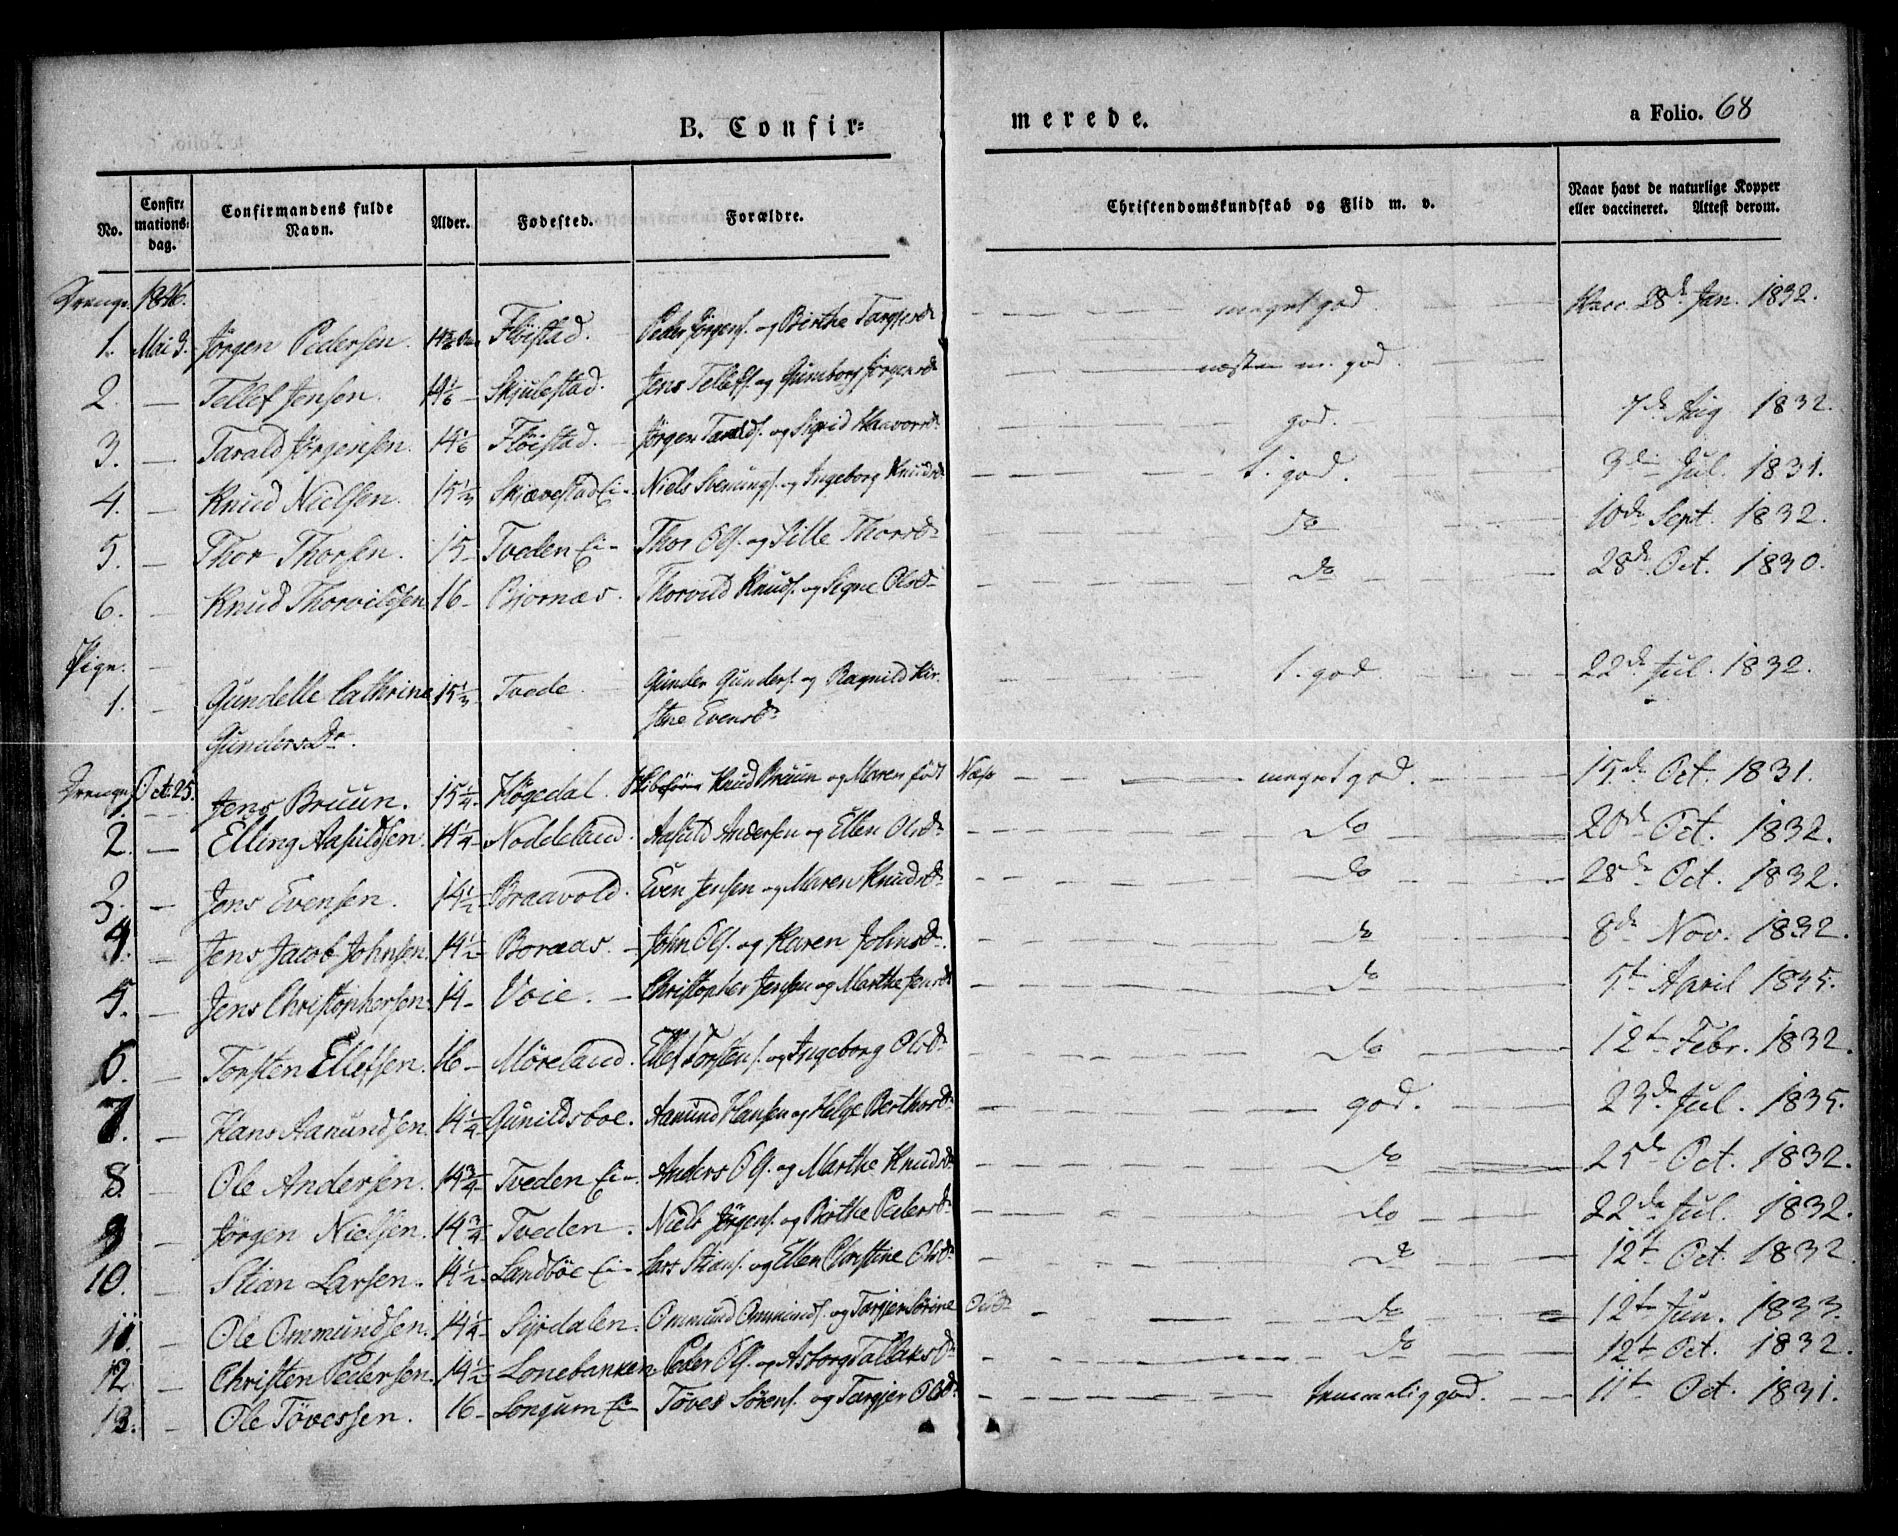 B. Confir=
merede.
a Folio. 68
No. Confir= mations= dag. Confirmandens fulde Navn. Alder. Fødested. Forældre. Christendomskundskab og Flid m. v. Naar havt de naturlige Kopper eller vaccineret. Attest derom.
Drenge. 1846.
1. Mai 3. Jørgen Pedersen. Fløistad. Peder Jørgens. og Birthe Targjersdr meget god. Vacc. 28de Jan. 1832.
2. — Tellef Jensen. 14 1/6 Skjulestad. Jens Tellefs. og Gunborg Jørgensdr næsten m. god.
3. — Tarald Jørgensen. 14 1/6 Fløistad. Jørgen Taralds. og Sigrid Haavorsdr god. 7de Aug 1832.
4. — Knud Nielsen. 15 1/3 Skjævestad Ei— Niels Svenungs. og Ingeborg Knudsdr t. god. 3de Jul. 1831.
5. — Thor Thorsen. 15 Tveden Ei— Thor Ols. og Sille Thorsdr do 10de Sept. 1832.
6. — Knud Thorvildsen 16 Bjornæs. Thorvild Knuds. og Signe Olsdr do 28de Oct. 1830.
Pige.
1. — Gundelle Cathrine 15 1/3 Tvede. Gunder Gunders. og Ragnild Kir- t. god 22de Jul. 1832.
Gundersdr. stine Evensdr
Drenge Oct. 25.
1. Jens Bruun. 15 1/4 Høgedal. Skibsfører Knud Bruun og Maren født Næss meget god. 15de Oct. 1831.
2. — Elling Aasuldsen. 14 1/4 Nodeland. Aasuld Andersen og Ellen Olsdr do 20de Oct. 1832.
3. — Jens Evensen. 14 1/2 Braavold. Even Jensen og Maren Knudsdr do 28de Oct. 1832.
4. — Jens Jacob Johnsen 14 1/2 Boraas. John Ols. og Karen Johnsdr. do 8de Nov. 1832.
5. — Jens Christophersen. 14 Voie. Christopher Jensen og Marthe Jensdr do 5t April 1835.
6. — Torsten Ellefsen. 16 Møreland. Ellef Torstens. og Ingeborg Olsdr do 12t Febr. 1832.
7. — Hans Aanundsen. 14 1/4 Gunildsboe. Aanund Hansen og Helge Berthorsdr god. 23de Jul. 1835.
8. — Ole Andersen. 14 3/4 Tveden Ei— Anders Ols. og Marthe Knudsdr do 25de Oct. 1832.
9 — Jørgen Nielsen. 14 3/4 Tveden. Niels Jørgens. og Birthe Pedersdr do 22de Jul. 1832.
10. — Stian Larsen. 14 1/2 Landbøe Ei— Lars Stians. og Ellen Christine Olsdr do 12t Oct. 1832
11. — Ole Ommundsen. 14 1/4 Syrdalen. Ommund Ommunds. og Targjer Sørine Olsdr do 12te Jun. 1833.
12 — Christen Pedersen. 14 1/2 Lonebakken Peder Ols. og Asborg Tallaksdr do 12t Oct. 1832.
13. — Ole Tövessen. 16 Longum Ei— Töves Sørens. og Targjer Olsdr temmelig god. 11t Oct. 1831.